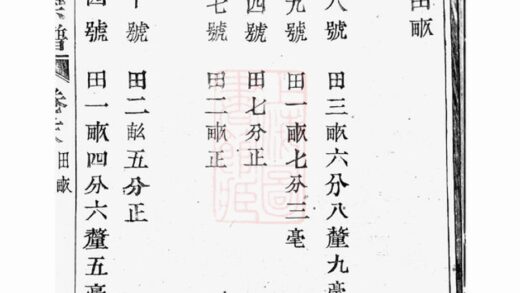 田畝
八號 田三畝六分八釐九毫
九號 田一畝七分三毫
四號 田七分正
七號 田二畝正
十號 田二畝五分正
四號 田一畝四分六釐五毫
宗譜 卷 田畝